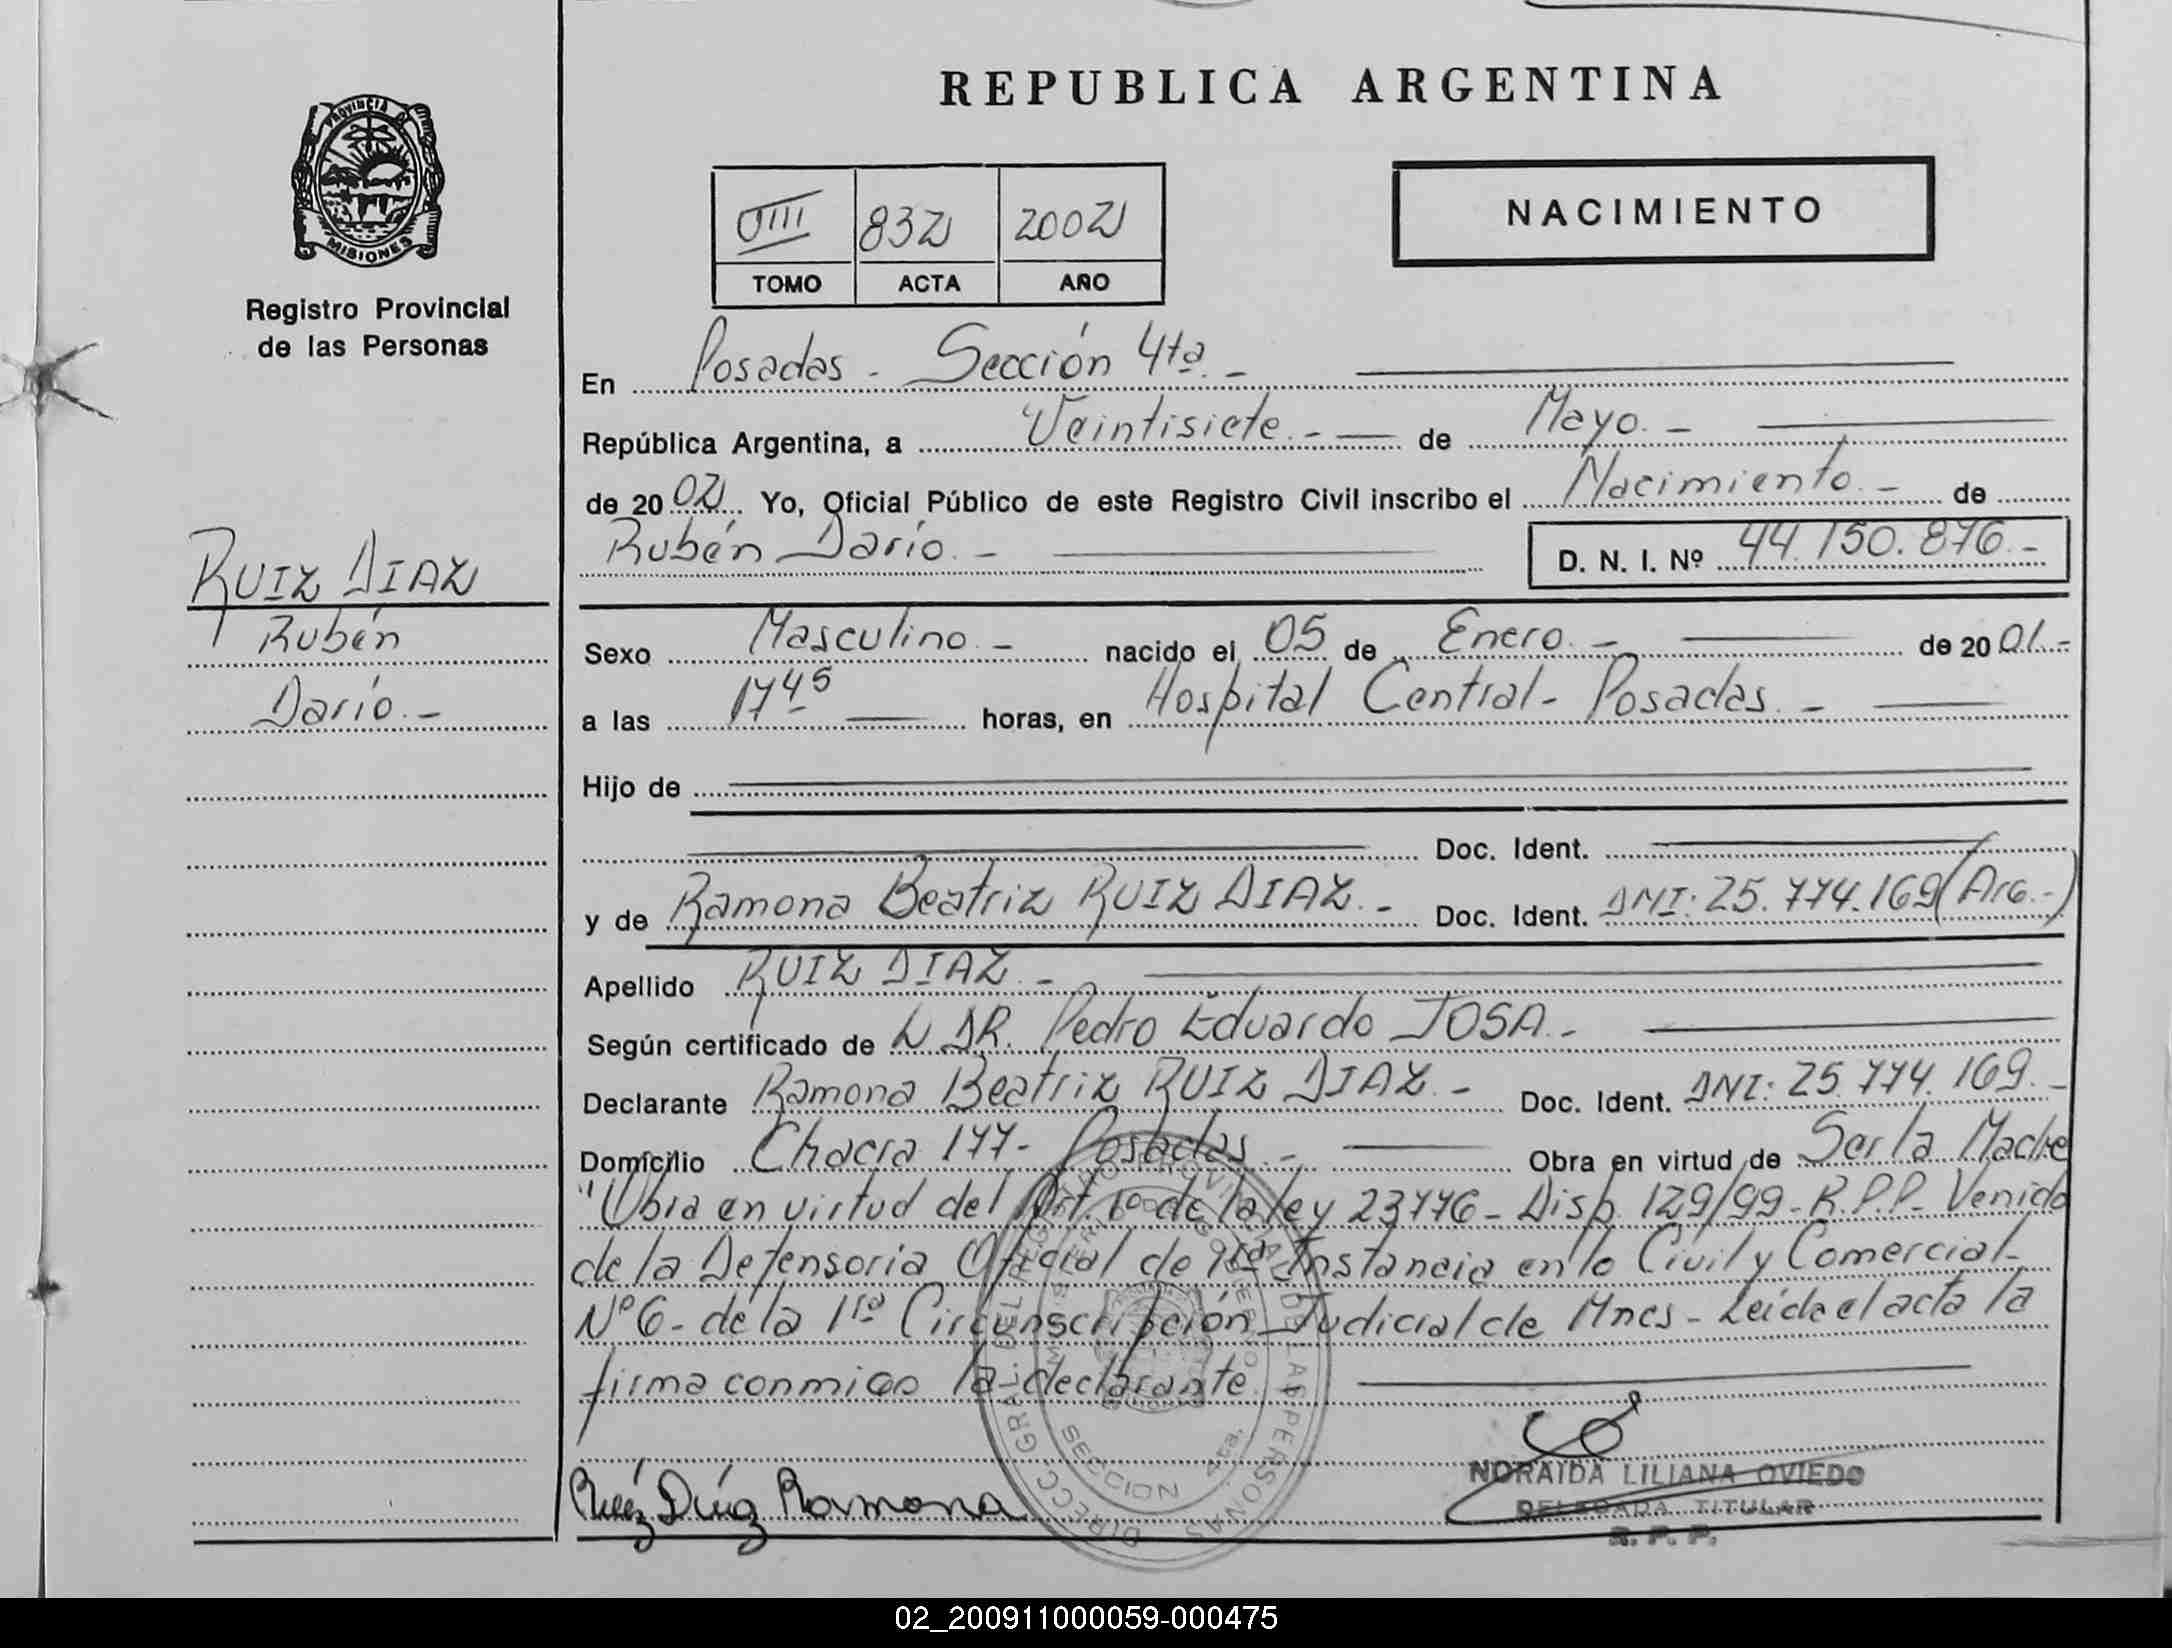 REPUBLICA ARGENTINA
PROVINCIA D
MISIONES
Registro Provincial
de las Personas
VIII 832 2002
TOMO ACTA AÑO
NACIMIENTO
En Posadas - Sección 4ta. -
República Argentina, a Veintisiete. - de Mayo. -
de 20 02 Yo, Oficial Público de este Registro Civil inscribo el Nacimiento. - de
Rubén Darío. - D. N. I. Nº 44.150.876. -
RUIZ DIAZ
Rubén
Darío. -
Sexo Masculino. - nacido el 05 de Enero. - de 20 01. -
a las 17 45 horas, en Hospital Central - Posadas. -
Hijo de
Doc. Ident.
y de Ramona Beatriz RUIZ DIAZ. - Doc. Ident. DNI: 25.774.169 (Arg. -)
Apellido RUIZ DIAZ. -
Según certificado de DR. Pedro Eduardo JOSA. -
Declarante Ramona Beatriz RUIZ DIAZ. - Doc. Ident. DNI: 25.774.169. -
Domicilio Chacra 177 - Posadas. - Obra en virtud de Ser la Madre
"Obra en virtud del Art. 1º de la ley 23776 - Disp. 129/99 - R.P.P. Venido
de la Defensoria Oficial de 1ra Instancia en lo Civil y Comercial -
Nº 6 - de la 1ra Circunscripción Judicial de Mnes - Leida el acta la
firma conmigo la declarante. -
DIRECC. GRAL. DEL REGISTRO PROVINCIAL DE LAS PERSONAS
MINISTERIO DE GOBIERNO
SECCION 4ta.
Ruiz Díaz Ramona
NORAIDA LILIANA OVIEDO
DELEGADA TITULAR
R. P. P.
02_200911000059-000475